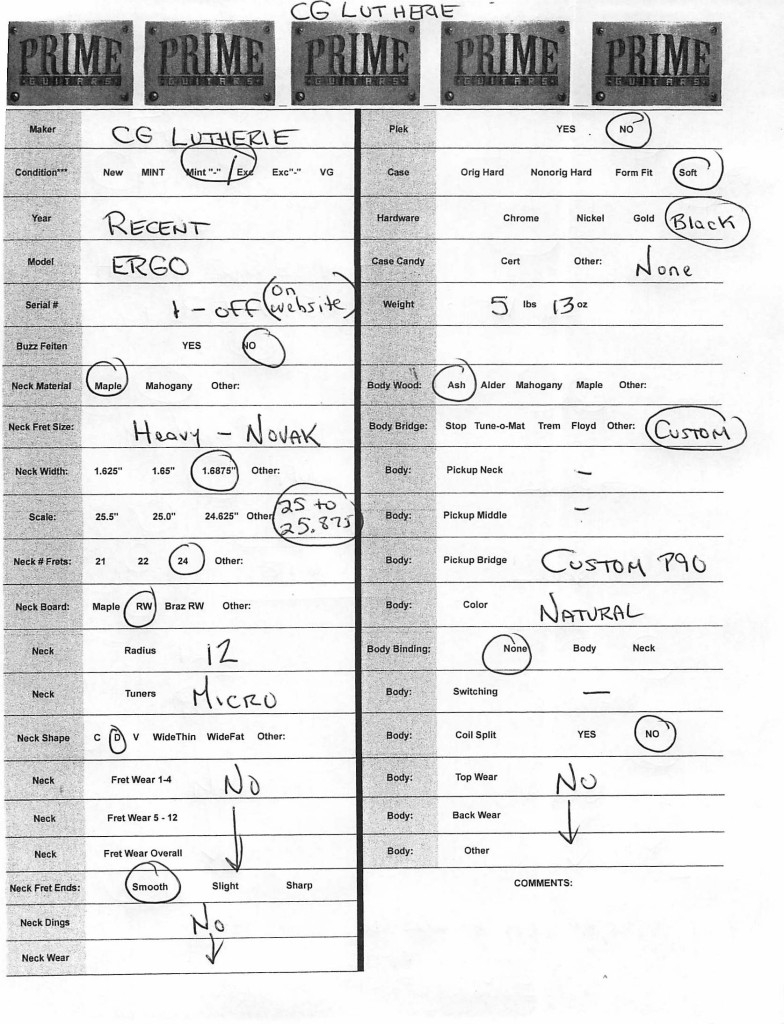 CG LUTHERIE
PRIME GUITARS PRIME GUITARS PRIME GUITARS PRIME GUITARS PRIME GUITARS
Maker CG LUTHERIE
Condition*** New MINT Mint "-" / Exc Exc"-" VG
Year RECENT
Model ERGO
Serial # 1 - OFF (on website)
Buzz Feiten YES NO
Neck Material Maple Mahogany Other:
Neck Fret Size: Heavy - NOVAK
Neck Width: 1.625" 1.65" 1.6875" Other:
Scale: 25.5" 25.0" 24.625" Other 25 to 25.875
Neck # Frets: 21 22 24 Other:
Neck Board: Maple RW Braz RW Other:
Neck Radius 12
Neck Tuners MICRO
Neck Shape C D V WideThin WideFat Other:
Neck Fret Wear 1-4 No
Neck Fret Wear 5 - 12
Neck Fret Wear Overall
Neck Fret Ends: Smooth Slight Sharp
Neck Dings No
Neck Wear
Plek YES NO
Case Orig Hard Nonorig Hard Form Fit Soft
Hardware Chrome Nickel Gold Black
Case Candy Cert Other: None
Weight 5 lbs 13 oz
Body Wood: Ash Alder Mahogany Maple Other:
Body Bridge: Stop Tune-o-Mat Trem Floyd Other: CUSTOM
Body: Pickup Neck —
Body: Pickup Middle —
Body: Pickup Bridge CUSTOM P90
Body: Color NATURAL
Body Binding: None Body Neck
Body: Switching —
Body: Coil Split YES NO
Body: Top Wear No
Body: Back Wear
Body: Other
COMMENTS: